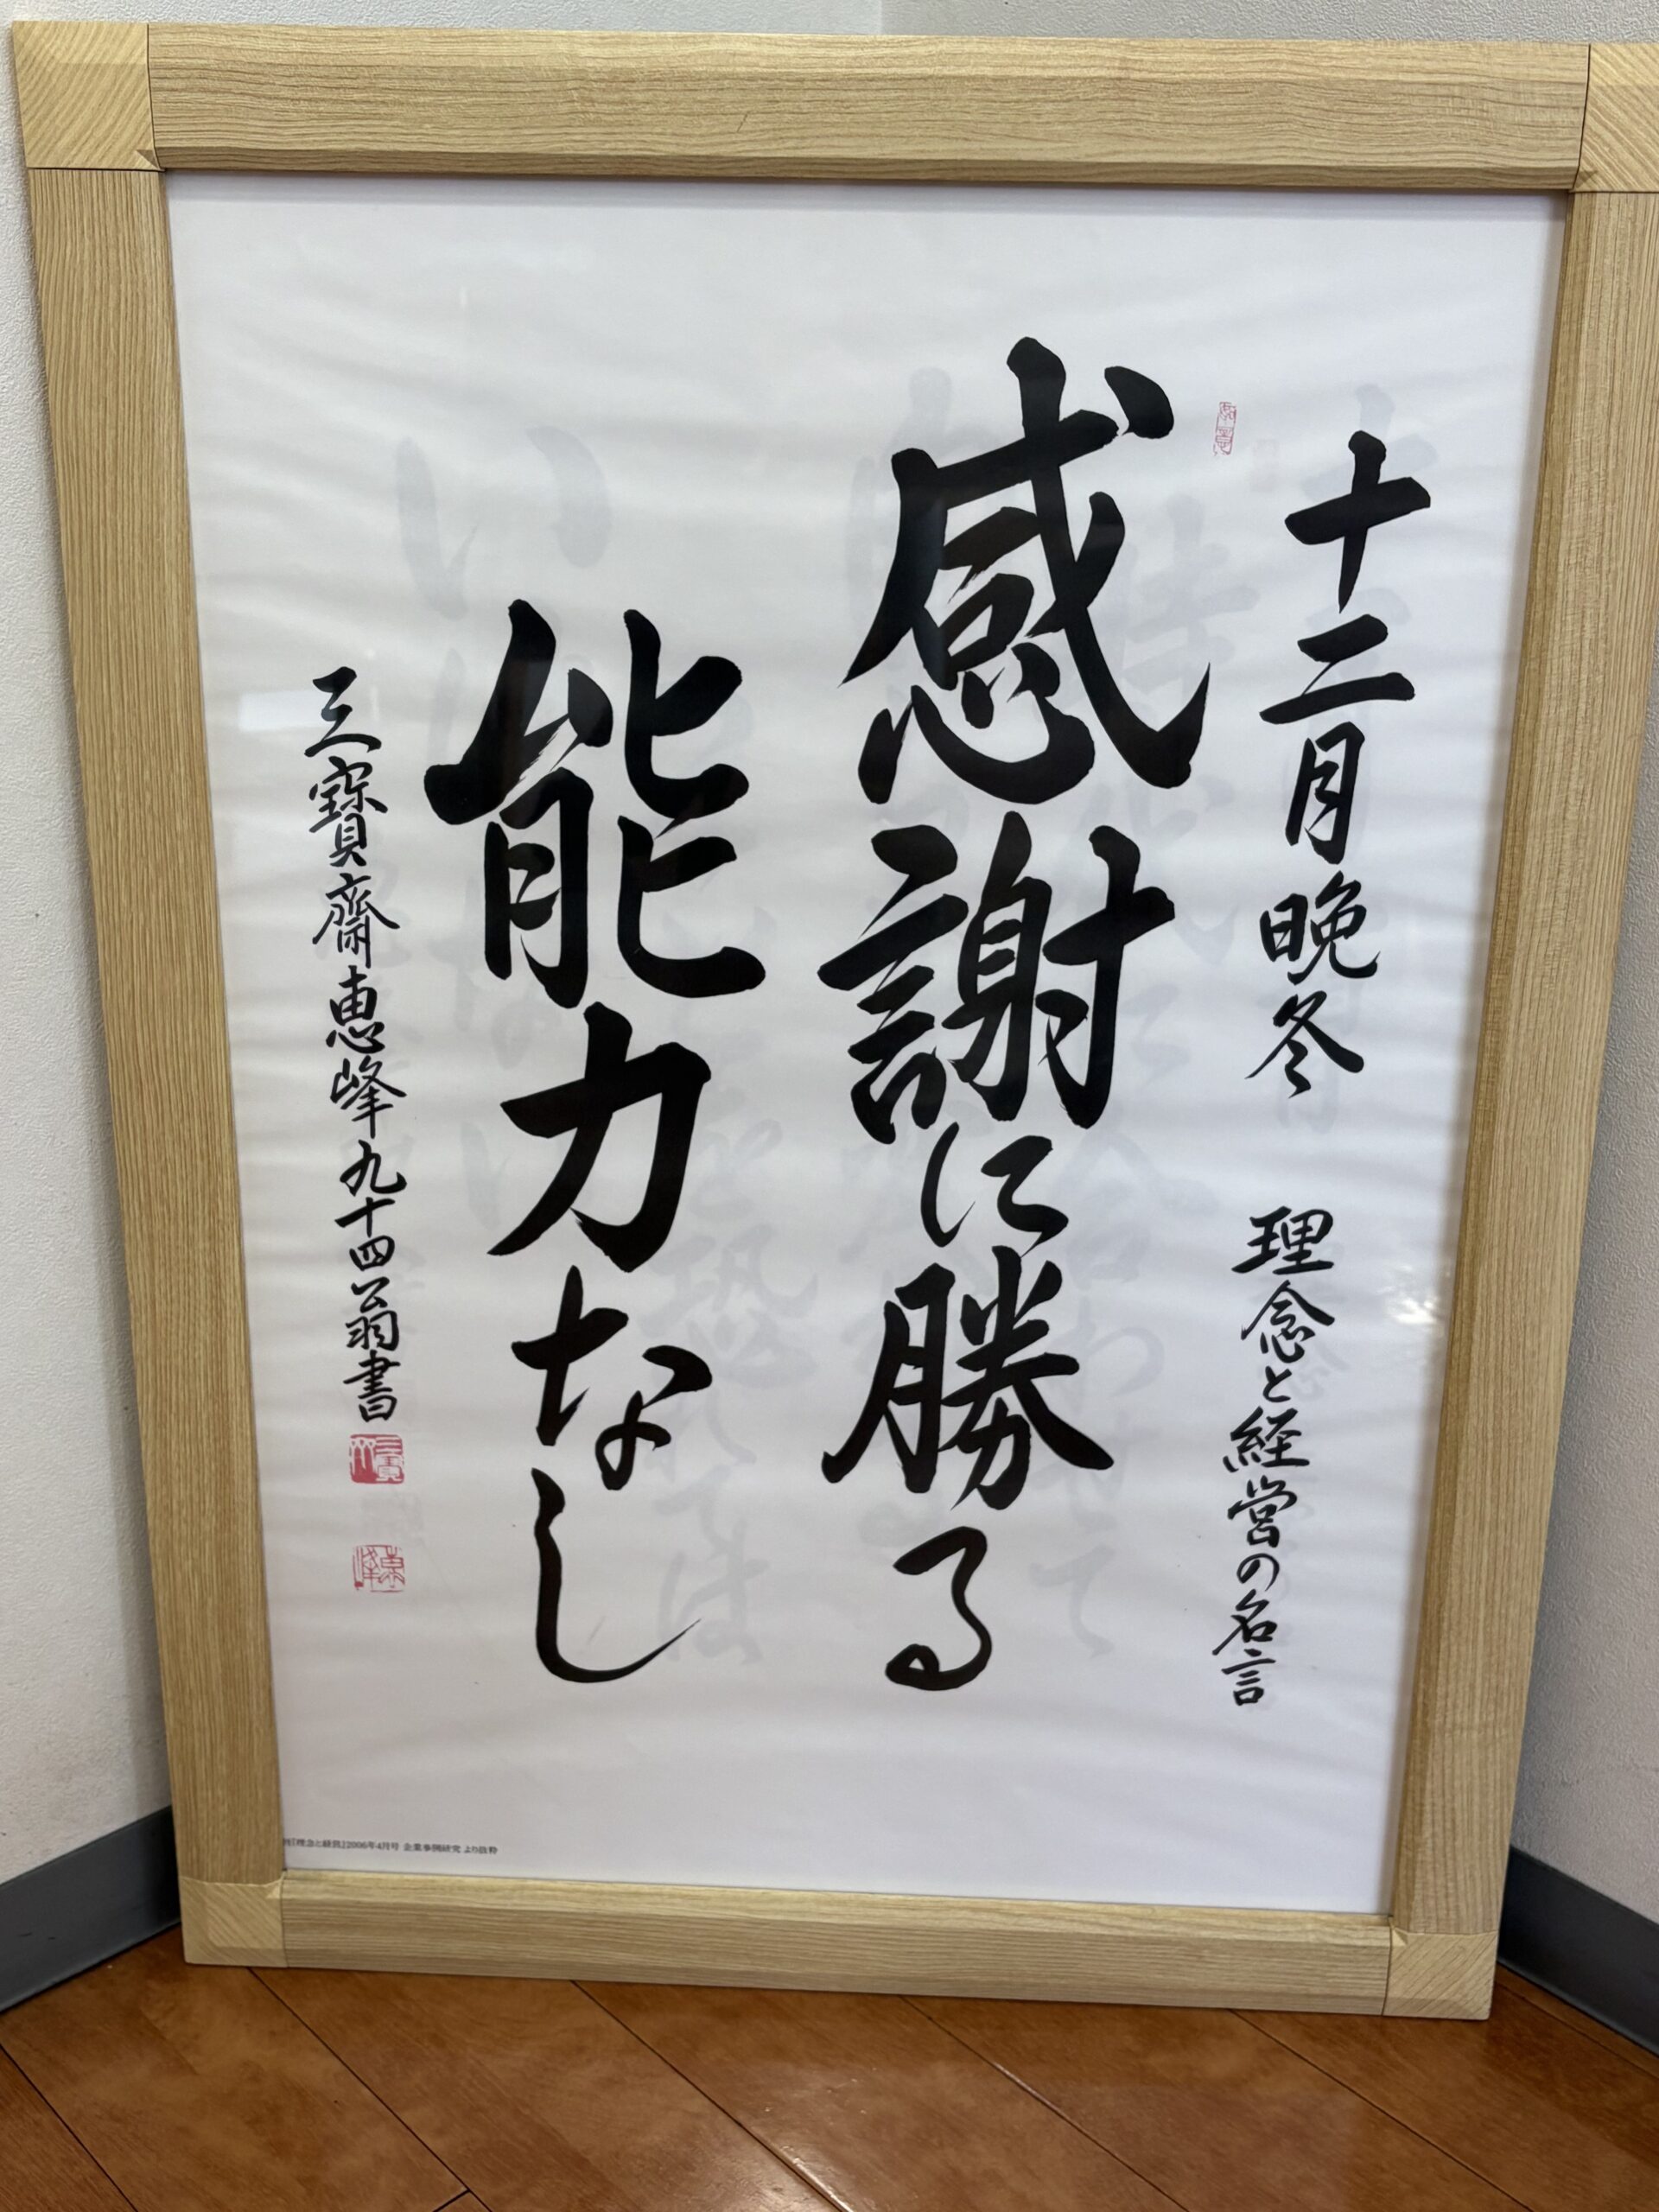 十二月 晩冬 理念と経営の名言
感謝に勝る
能力なし
三寳齋恵峰九十四翁書
『理念と経営』2006年4月号 企業事例研究 より抜粋